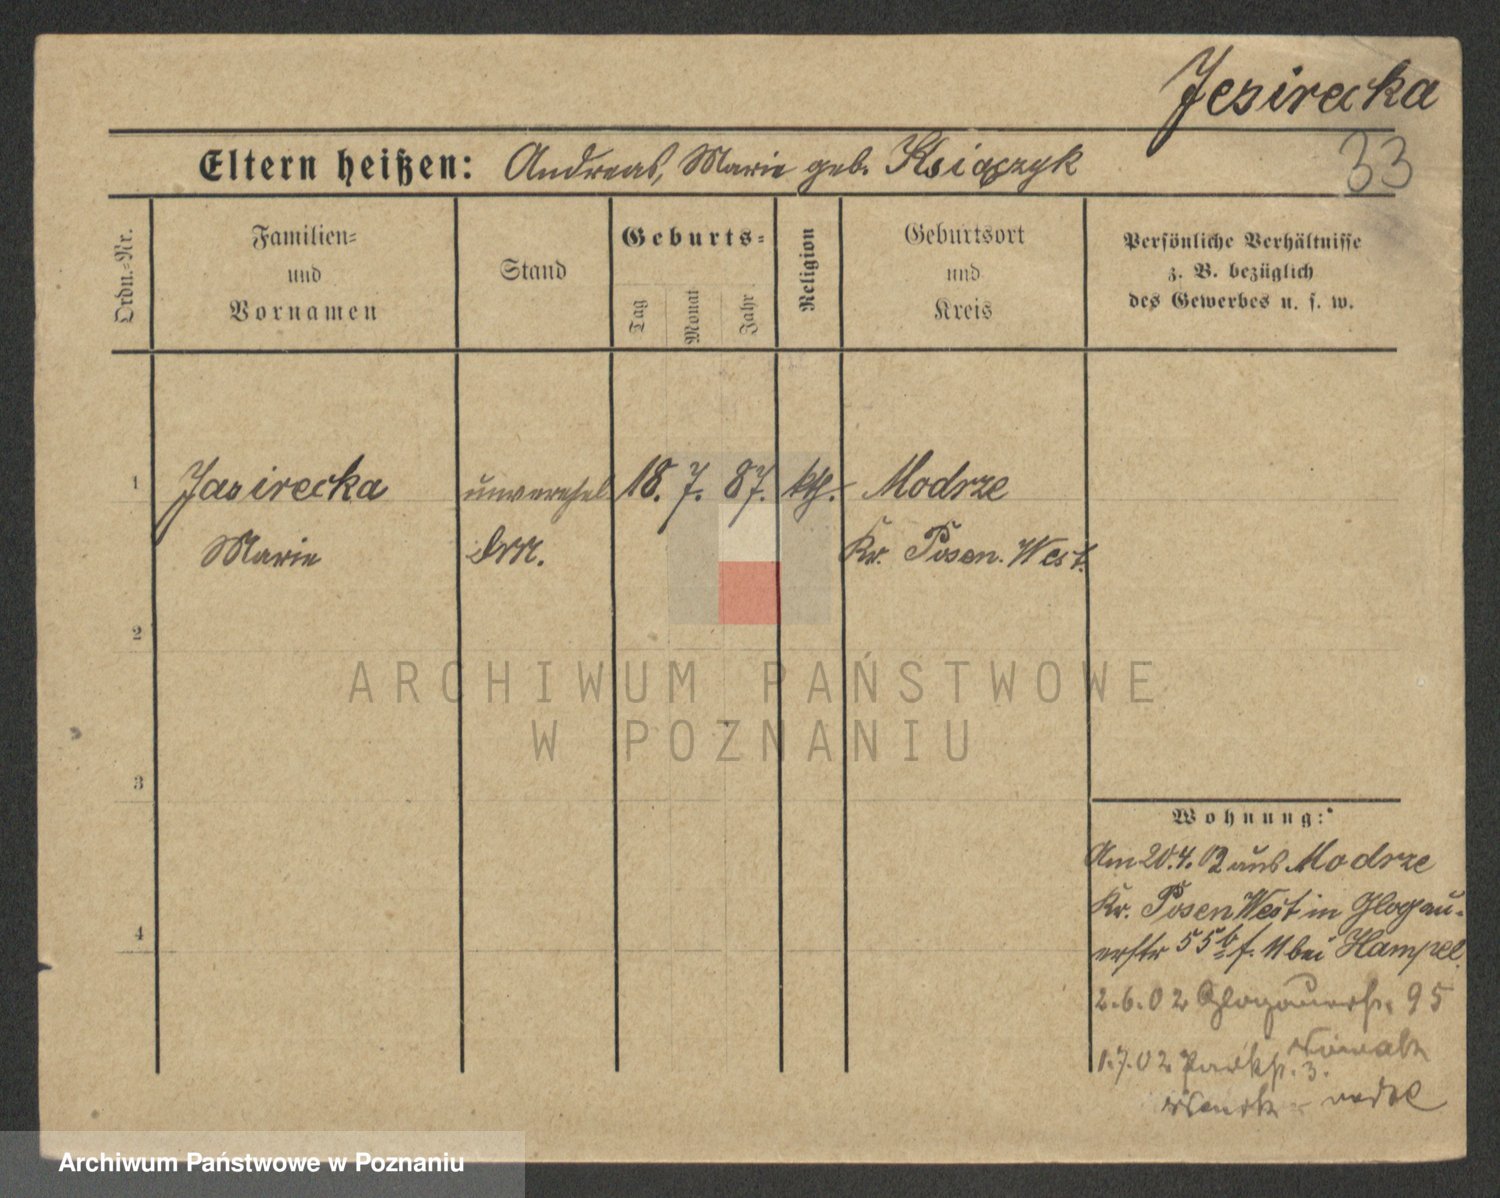 Jesirecka
33
Eltern heißen: Andreas, Marie geb. Książyk
Ordn.-Nr.
Familien-
und
Vornamen
Stand
Geburts-
Tag
Monat
Jahr
Religion
Geburtsort
und
Kreis
Persönliche Verhältnisse
z. B. bezüglich
des Gewerbes u. s. w.
1
Jasirecka
Marie
unverehel
18. 7. 87.
kth.
Modrze
Kr. Posen. West.
2
3
4
Wohnung:
Am 20.4.02 aus Modrze
Kr. Posen West in Glogau-
erstr 55b f. II bei Hampel.
2.6.02 Glogauerstr. 95
1.7.02 Parkstr. 3.
ARCHIWUM PAŃSTWOWE
W POZNANIU
Archiwum Państwowe w Poznaniu